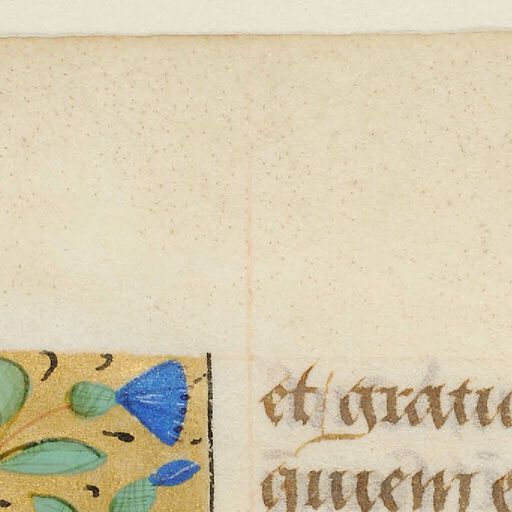 et gratia
quiem e